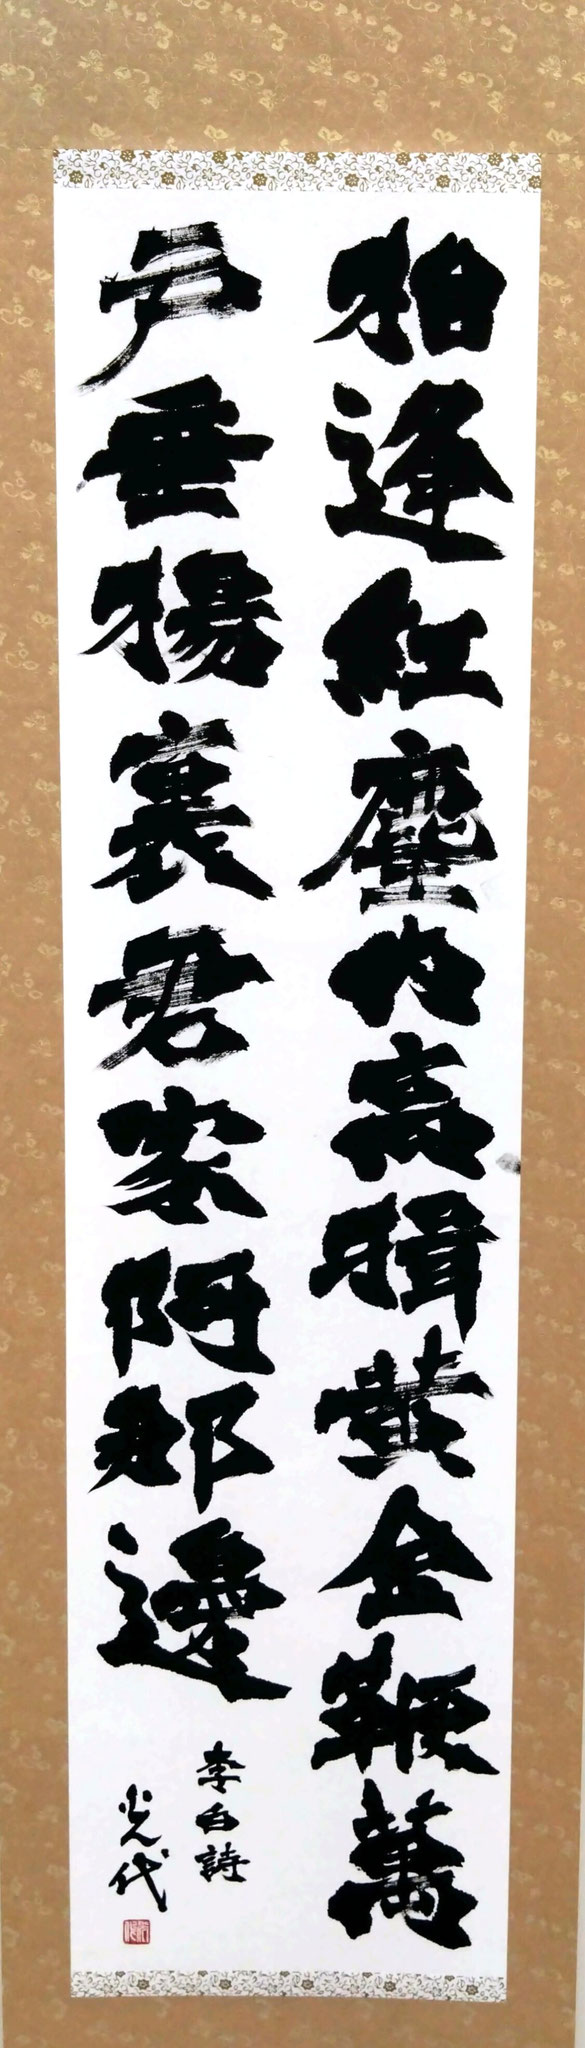 相逢紅塵內高揖黃金鞭萬
戶垂楊裏君家阿那邊
李白詩
光代